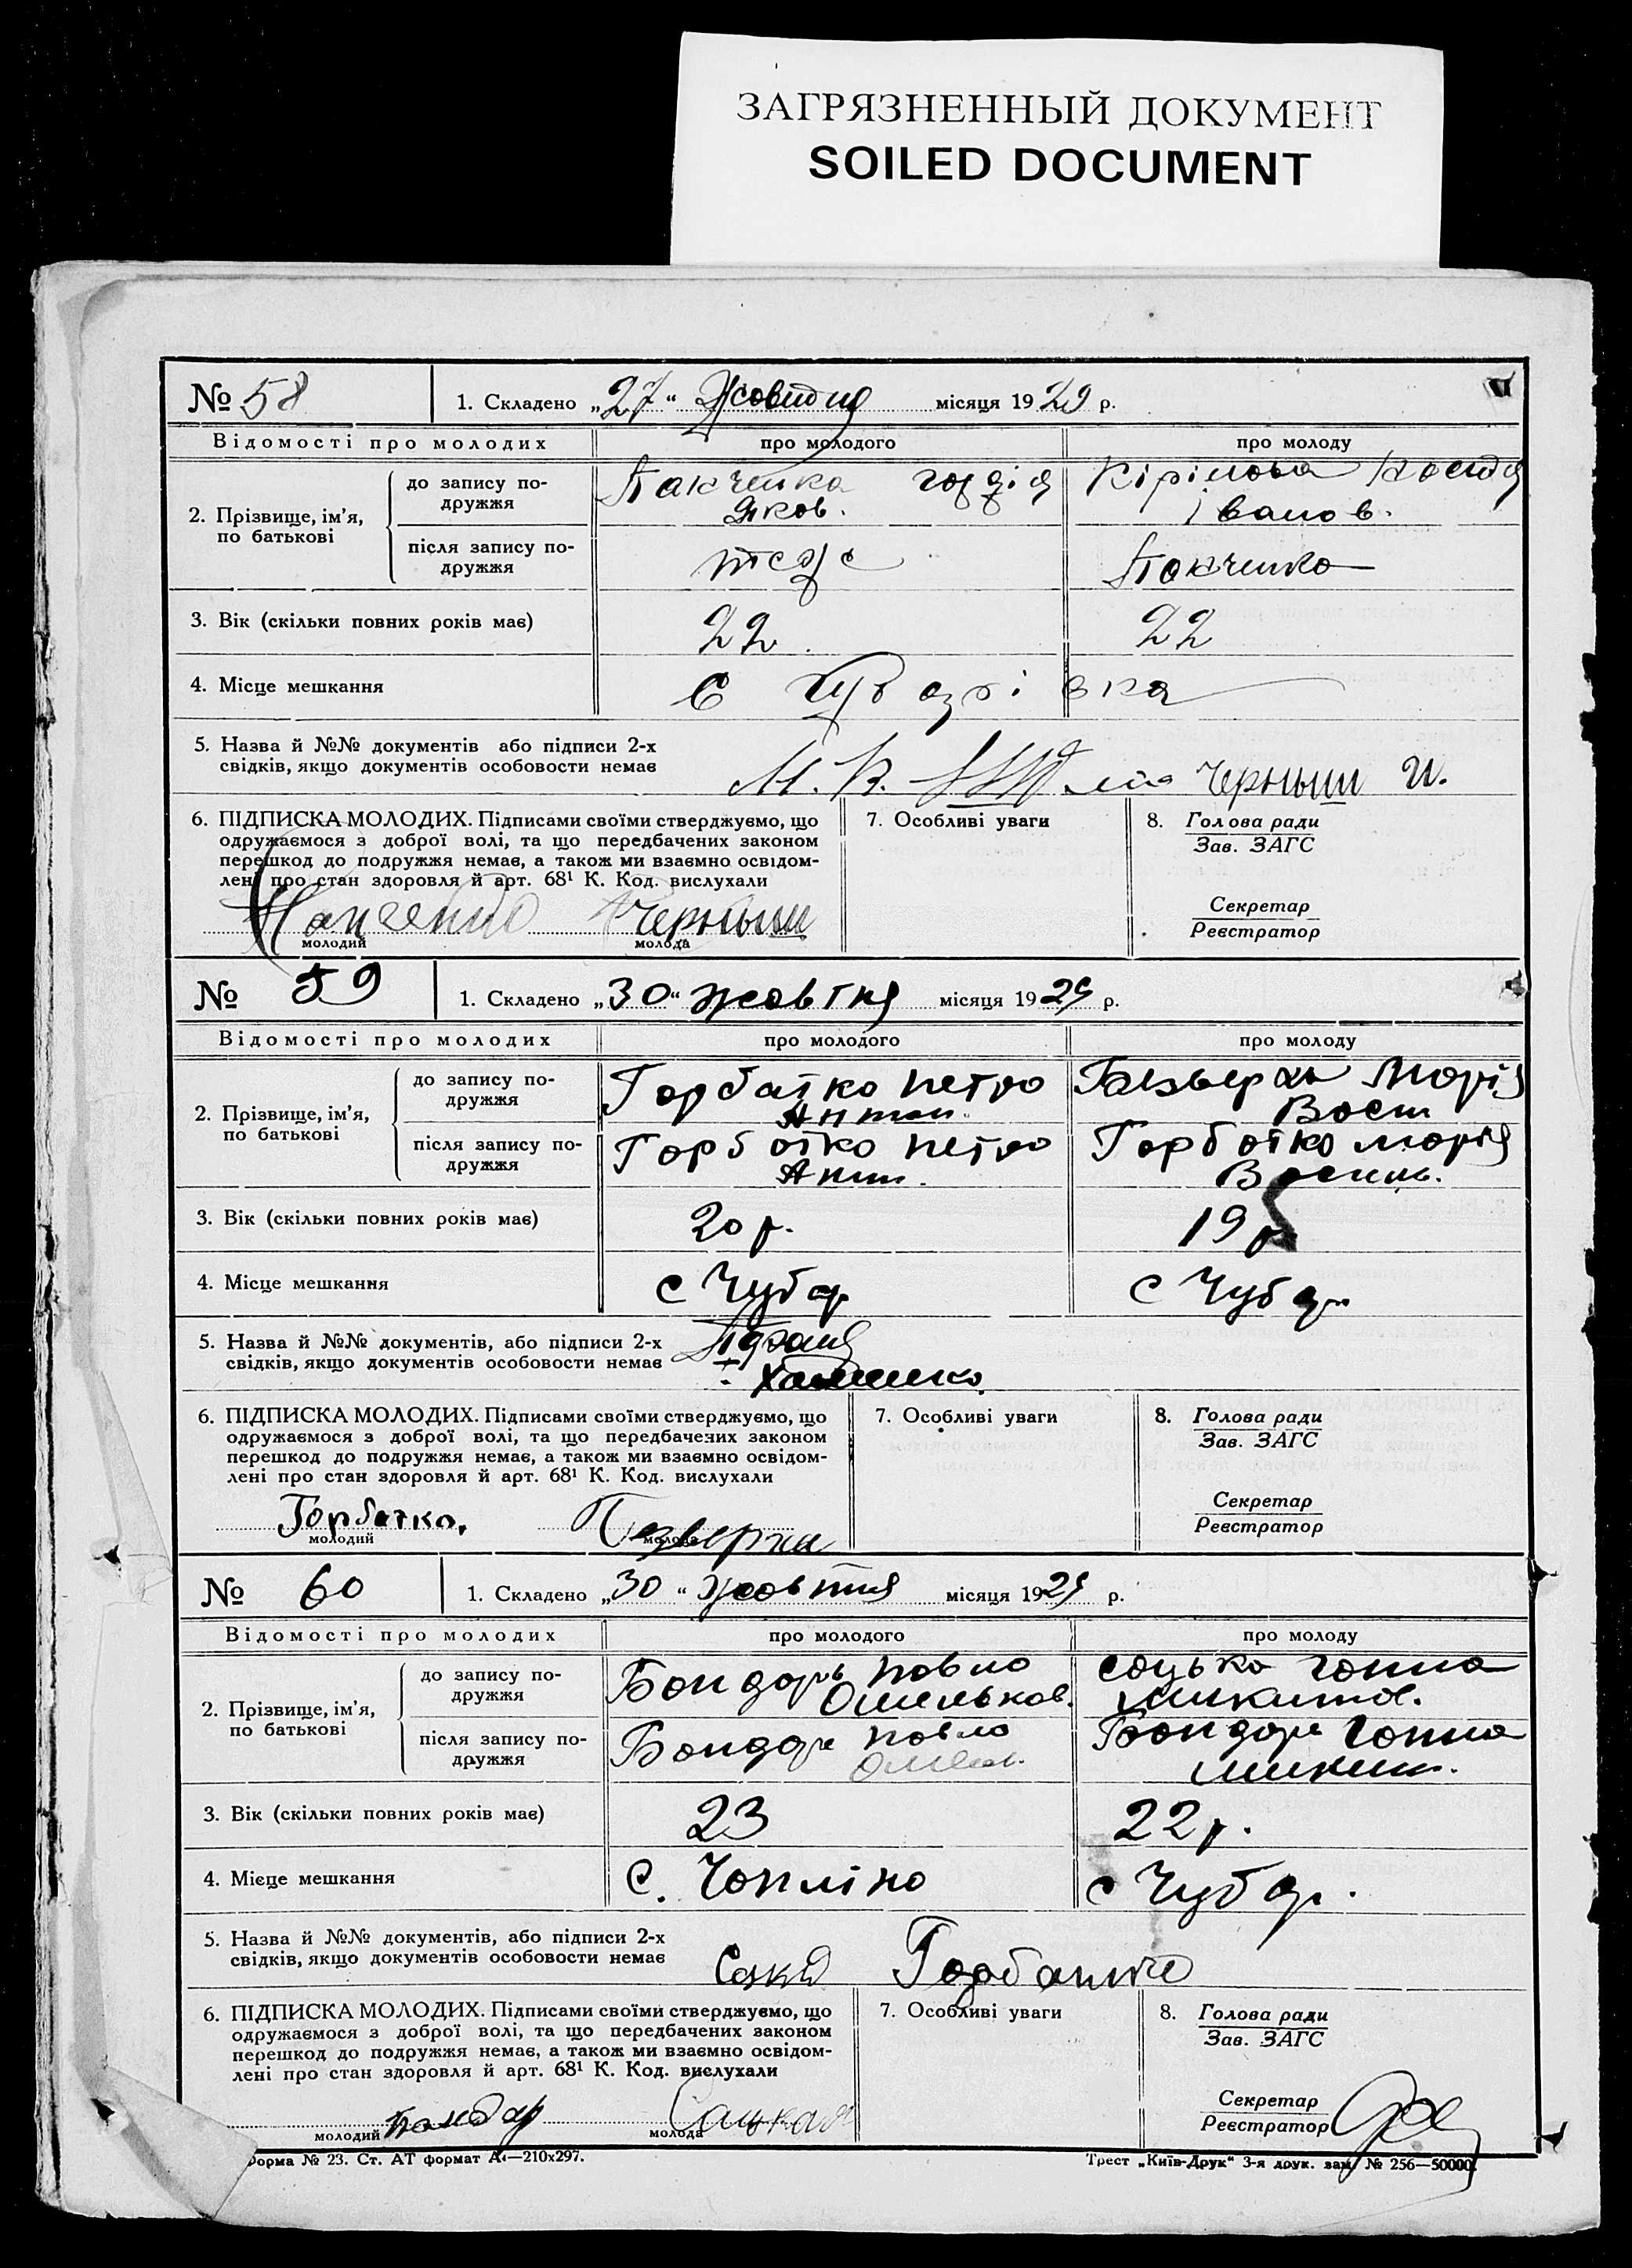 ЗАГРЯЗНЕННЫЙ ДОКУМЕНТ
SOILED DOCUMENT
№ 58
1. Складено „27“ Жовтня місяця 1929 р.
Відомості про молодих
про молодого
про молоду
2. Прізвище, ім’я, по батькові
до запису по-
дружжя
Яков.
Іванов.
після запису по-
дружжя
теж
3. Вік (скільки повних років має)
22
22
4. Місце мешкання
С
5. Назва й №№ документів або підписи 2-х
свідків, якщо документів особовости немає
Черныш И.
6. ПІДПИСКА МОЛОДИХ. Підписами своїми стверджуємо, що
одружаємося з доброї волі, та що передбачених законом
перешкод до подружжя немає, а також ми взаємно освідом-
лені про стан здоровля й арт. 68¹ К. Код. вислухали
Черныш
молодий
молода
7. Особливі уваги
8. Голова ради
Зав. ЗАГС
Секретар
Реєстратор
№ 59
1. Складено „30“ жовтня місяця 1929 р.
Відомості про молодих
про молодого
про молоду
2. Прізвище, ім’я,
по батькові
до запису по-
дружжя
Горбатко Петро
Антон.
Марія
Васи
після запису по-
дружжя
Горбатко Петро
Ант.
Горбатко Марія
Василь.
3. Вік (скільки повних років має)
20 р.
19 р.
4. Місце мешкання
с Чубар
с Чубар
5. Назва й №№ документів, або підписи 2-х
свідків, якщо документів особовости немає
6. ПІДПИСКА МОЛОДИХ. Підписами своїми стверджуємо, що
одружаємося з доброї волі, та що передбачених законом
перешкод до подружжя немає, а також ми взаємно освідом-
лені про стан здоровля й арт. 68¹ К. Код. вислухали
Горбатко.
молодий
молода
7. Особливі уваги
8. Голова ради
Зав. ЗАГС
Секретар
Реєстратор
№ 60
1. Складено „30“ жовтня місяця 1929 р.
Відомості про молодих
про молодого
про молоду
2. Прізвище, ім’я,
по батькові
до запису по-
дружжя
Бондарь Павло
Омельков.
Соцька Ганна
Микитов.
після запису по-
дружжя
Бондарь Павло
Омел.
Бондарь Ганна
Микит.
3. Вік (скільки повних років має)
23
22 р.
4. Місце мешкання
с. Чапліно
с Чубар.
5. Назва й №№ документів, або підписи 2-х
свідків, якщо документів особовости немає
Горбатко
6. ПІДПИСКА МОЛОДИХ. Підписами своїми стверджуємо, що
одружаємося з доброї волі, та що передбачених законом
перешкод до подружжя немає, а також ми взаємно освідом-
лені про стан здоровля й арт. 68¹ К. Код. вислухали
Бондар
молодий
молода
7. Особливі уваги
8. Голова ради
Зав. ЗАГС
Секретар
Реєстратор
Форма № 23. Ст. АТ формат А₄—210х297.
Трест „Київ-Друк“ 3-я друк. зам. № 256—50000.